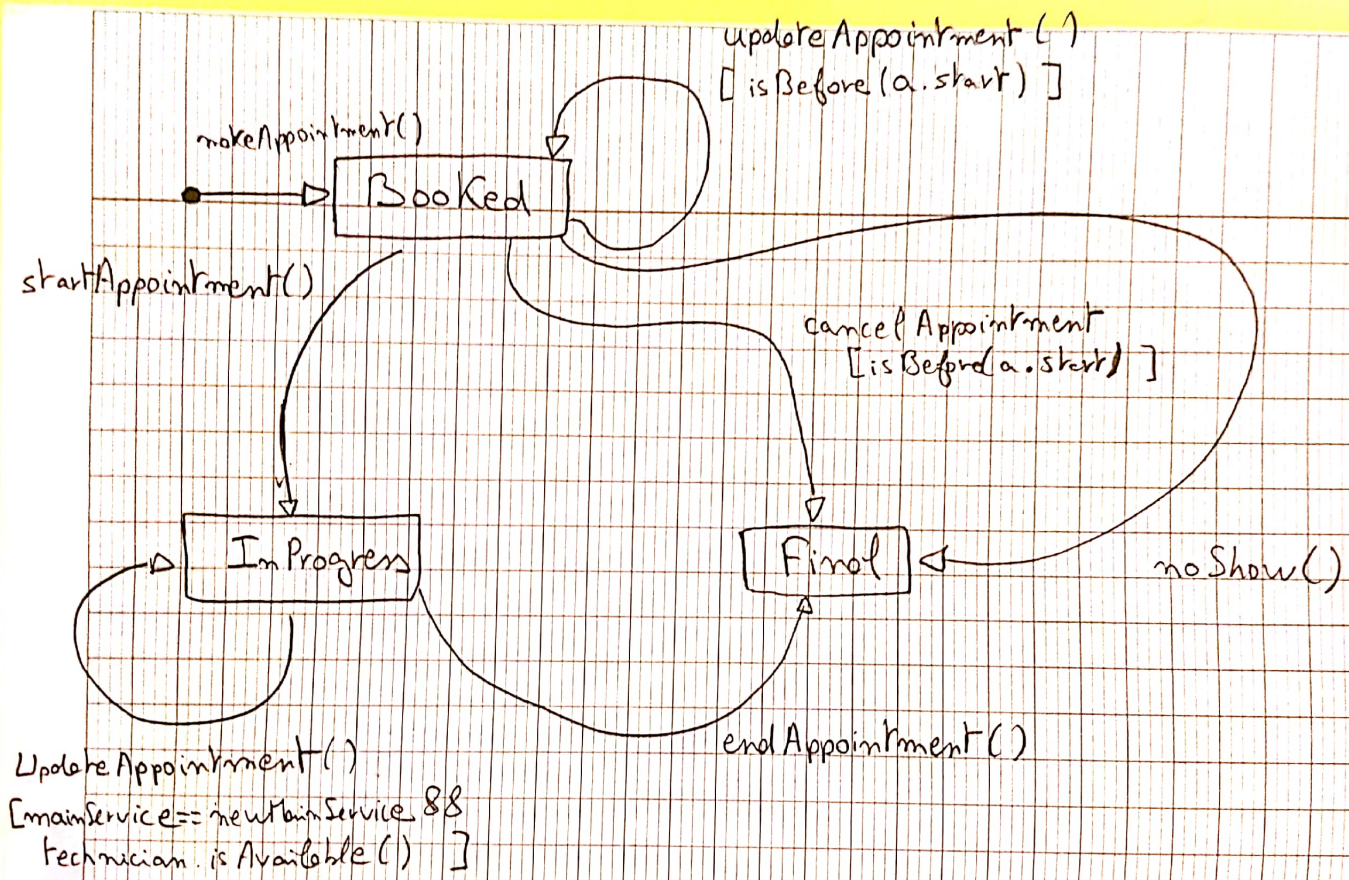 updateAppointment ( )
[ isBefore (a.start) ]
makeAppointment()
Booked
startAppointment()
cancel Appointment
[isBefore(a.start) ]
InProgress
Final
noShow()
endAppointment()
UpdateAppointment()
[mainService== newMainService &&
technician. isAvailable() ]